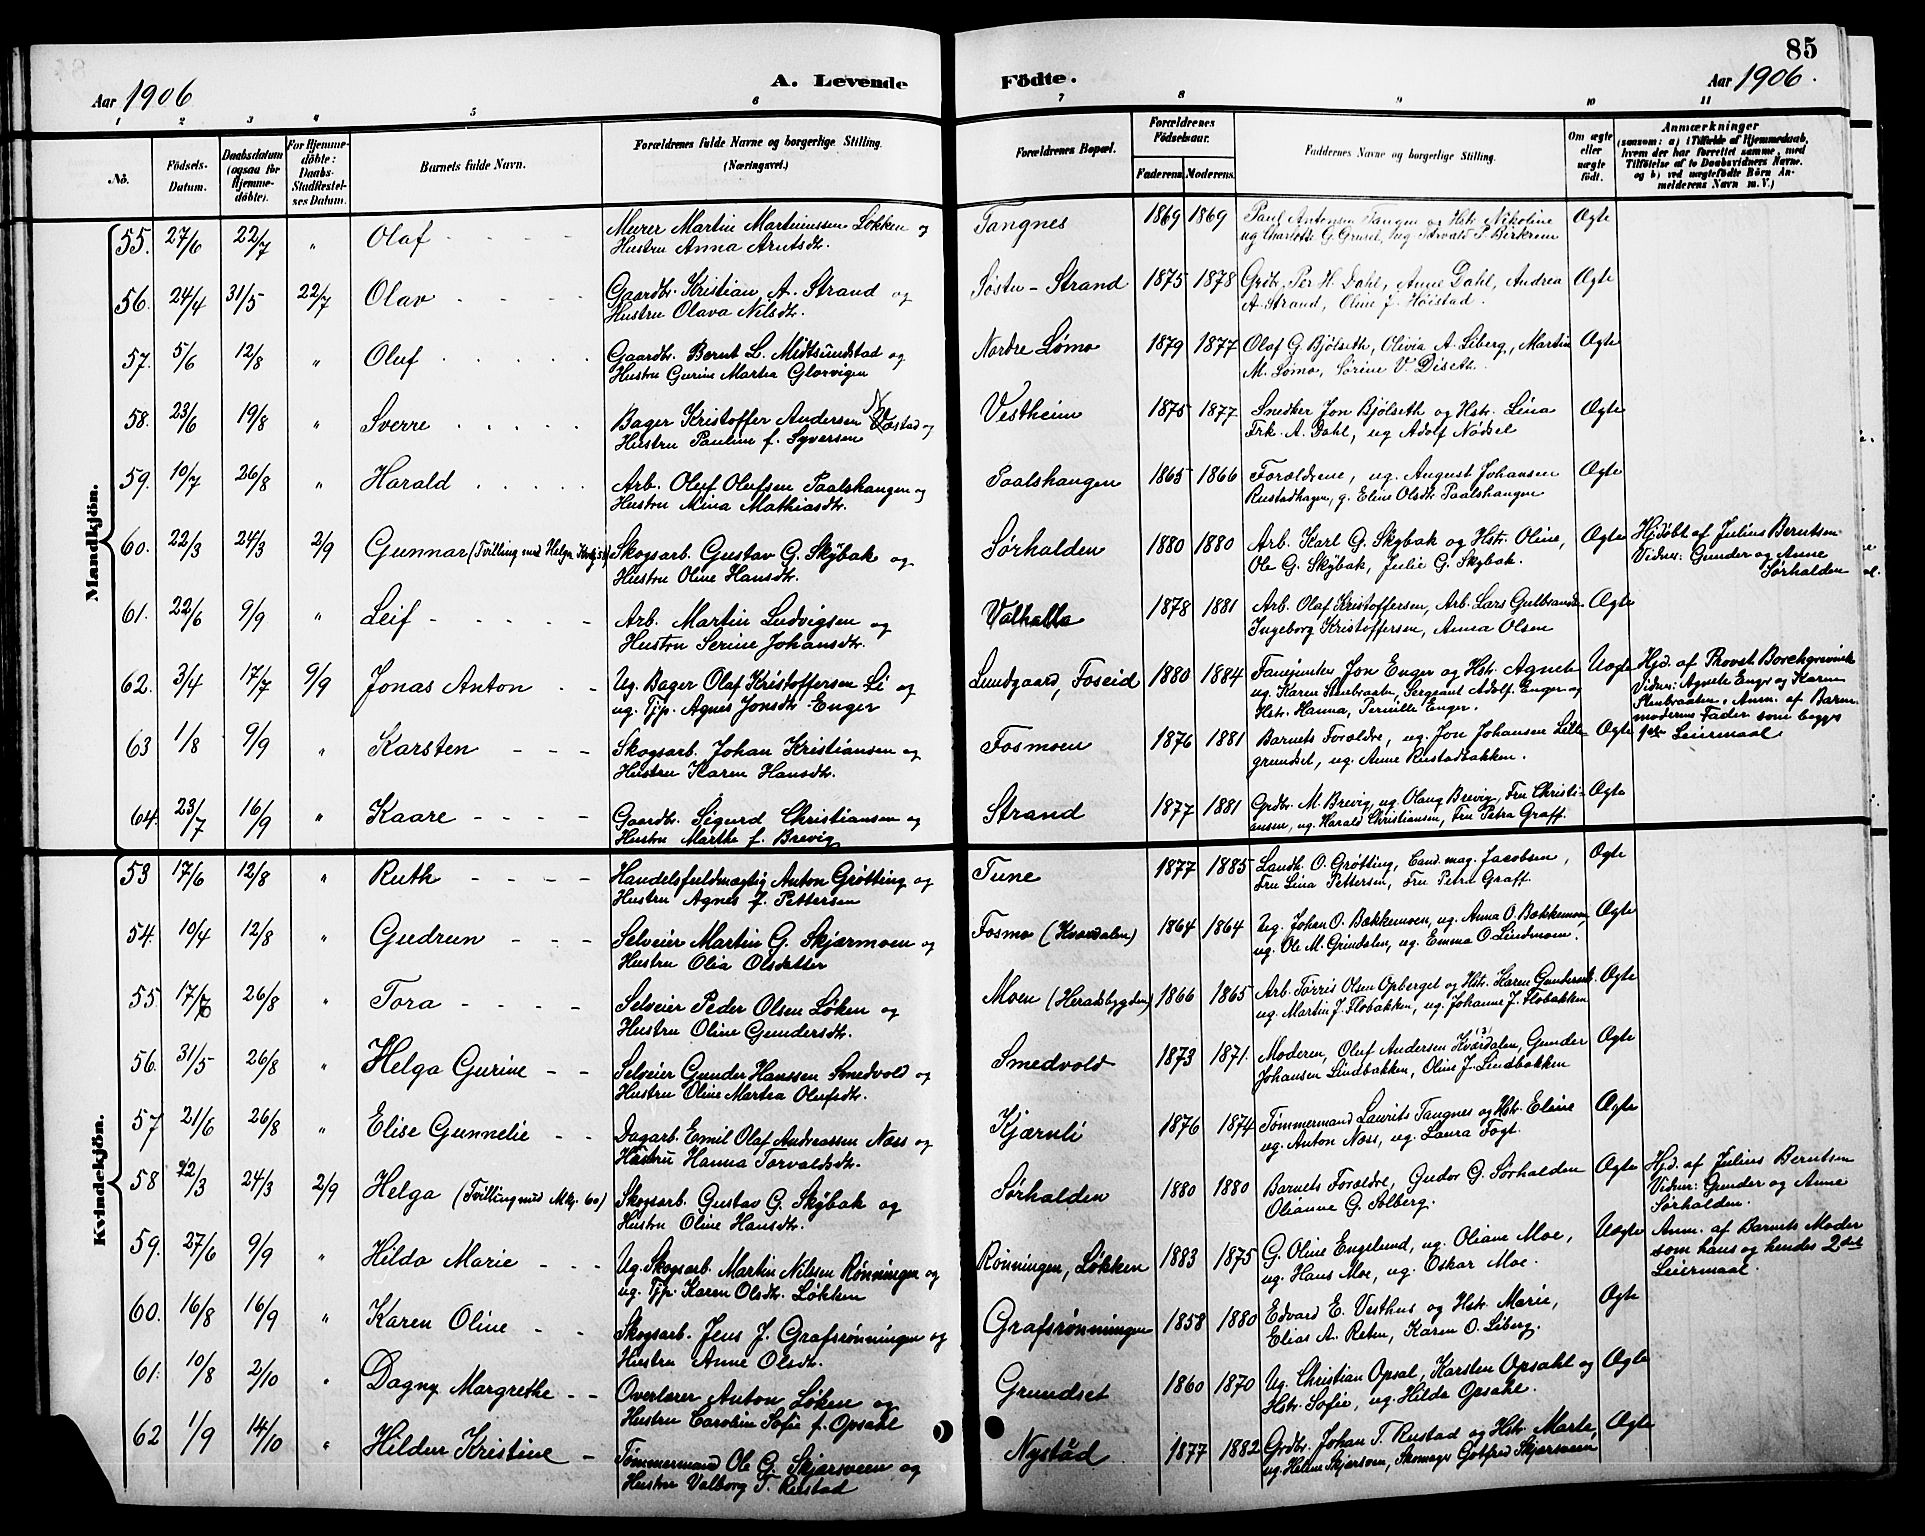 85
Aar 1906
A. Levende
Födte.
Aar 1906.
1 2 3 4 5 6 7 8 9 10 11
No.
Födsels-Datum.
Daabsdatum (ogsaa for Hjemme-döbte).
For Hjemme-döbte: Daabs-Stadfæstel-ses Datum.
Barnets fulde Navn.
Forældrenes fulde Navne og borgerlige Stilling. (Næringsvei.)
Forældrenes Bopæl.
Forældrenes Födselsaar.
Faderens. Moderens.
Faddernes Navne og borgerlige Stilling.
Om ægte eller uægte födt.
Anmærkninger
(saasom: a) i Tilfælde af Hjemmedaab, hvem der har forrettet samme, med Tilföielse af to Daabsvidners Navne. og b) ved uægtefödte Börn An-melderens Navn m. V.)
Mandkjön.
55. 27/6 22/7 " Olaf Murer Martin Martinussen Løkken og Tangnes 1869 1869 Paul Antonsen Tangen og Hstr. Nikoline Ægte
Hustru Anna Arntsdtr. ug Charlotte G. Grusel, ug. Torvald P. Birkrem
56. 24/4 31/5 22/7 Olav Gaardbr. Kristian A. Strand og Søstu-Strand 1875 1878 Grdbr. Per H. Dahl, Anne Dahl, Andrea Ægte
Hustru Olava Nilsdtr. A. Strand, Oline f. Høistad.
57. 5/6 12/8 " Oluf Gaardbr. Bernt L. Midtsundstad og Nordre Lømo 1879 1877 Olaf G. Bjølseth, Olivia A. Liberg, Martin Ægte
Hustru Gurine Martea Glorvigen M. Lømo, Sørine V. Diseth.
58. 23/6 19/8 " Sverre Bager Kristoffer Andersen Væstad og Vestheim 1875 1877 Snedker Jon Bjølseth og Hstr. Lina Ægte
Hustru Pauline f. Syversen Frk. A. Dahl, ug Adolf Nødsel
59. 10/7 26/8 " Harald Arb. Oluf Olufsen Paalshaugen og Paalshaugen 1865 1866 Forældrene, ug. August Johansen Ægte
Hustru Mina Mathiasdtr. Rustadhagen, g. Eline Olsdtr. Paalshaugen
60. 22/3 24/3 2/9 Gunnar (Tvilling med Helga Kvkj. 58) Skogsarb. Gustav G. Skybak og Sørhalden 1880 1880 Arb. Karl G. Skybak og Hstr. Oline, Ægte Hjdøbt af Julius Berntsen
Hustru Oline Hansdtr. Ole G. Skybak, Julie G. Skybak. Vidner: Gunder og Anne Sørhalden
61. 22/6 9/9 " Leif Arb. Martin Ludvigsen og Valhalla 1878 1881 Arb. Olaf Kristoffersen, Arb. Lars Gulbrands. Ægte
Hustru Serine Johansdtr. Ingeborg Kristoffersen, Anna Olsen
62. 3/4 17/7 9/9 Jonas Anton Ug. Bager Olaf Kristoffersen Li og Lundgaard, Foseid 1880 1884 Fanejunker Jon Enger og Hstr. Agnete Uægte Hjd. af Provst Borchgrevink
ug. Tjp. Agnes Jonsdtr. Enger ug. Karen Stenbraaten, Sergeant Adolf Enger og Vidner: Agnete Enger og Karen
Hstr. Hanna, Pernille Enger. Stenbraaten. Anm. af Barne-
moderens Fader som begges
1ste Leiermaal
63 1/8 9/9 " Karsten Skogsarb. Johan Kristiansen og Fosmoen 1876 1881 Barnets Forældre, ug. Jon Johansen Lille- Ægte
Hustru Karen Hansdtr. grundset, ug. Anne Rustadbakken.
64. 23/7 16/9 " Kaare Gaardbr. Sigurd Christiansen og Strand 1877 1881 Grdbr. M. Brevig, ug. Olaug Brevig, Fru Christi- Ægte
Hustru Marthe f. Brevig ansen, ug. Harald Christiansen, Fru Petra Graff.
Kvindekjön.
53 17/6 12/8 " Ruth Handelsfuldmægtig Anton Grøtting og Tune 1877 1885 Landh. O. Grøtting, Cand. mag. Jacobsen, Ægte
Hustru Agnes f. Pettersen Fru Lina Pettersen, Fru Petra Graff.
54. 10/4 12/8 " Gudrun Selveier Martin G. Skjærmoen og Fosmo (Kværdalen) 1864 1864 Ug. Johan O. Bækkemoen, ug. Anna O. Bækkemoen, Ægte
Hustru Olia Olsdatter ug. Ole M. Grindalen, ug. Emma O. Lindmoen.
55. 17/6 26/8 " Tora Selveier Peder Olsen Løken og Moen (Heradsbygden) 1866 1865 Arb. Tørris Olsen Opberget og Hstr. Karen Gundersdtr. Ægte
Hustru Oline Gundersdtr. ug. Martin J. Flobakken, ug. Johanne J. Flobakken
56. 31/5 26/8 " Helga Gurine Selveier Gunder Hanssen Smedvold og Smedvold 1873 1871. Moderen, Oluf Andersen Kværdalen, Gunder Ægte
Hustru Oline Martea Olufsdtr. Johansen Lindbakken, Oline J. Lindbakken
57 21/6 26/8 " Elise Gunnelie Dagarb. Emil Olaf Andreassen Næss og Kjærnli 1876 1874 Tømmermand Laurits Tangnes og Hstr. Eline Ægte
Hustru Hanna Torvaldsdtr. ug. Anton Næss, ug. Laura Fogt.
58 22/3 24/3 2/9 Helga (Tvilling med Mkj. 60) Skogsarb. Gustav G. Skybak og Sørhalden 1880 1880 Barnets Forældre, Gudor G. Sørhalden Ægte Hjd. af Julius Berntsen
Hustru Oline Hansdtr. Olianne G. Solberg. Vidner: Gunder og Anne
Sørhalden.
59. 27/6 9/9 " Hilda Marie Ug. Skogsarb. Martin Nilssen Rønningen og Rønningen, Løkken 1883 1875 G. Oline Engelund, ug. Oliane Moe, Uægte Anm. af Barnets Moder
ug. Tjp. Karen Olsdtr. Løkken ug. Hans Moe, ug. Oskar Moe. som hans og hendes 2det
Leiermaal
60. 16/8 16/9 " Karen Oline Skogsarb. Jens J. Grafsrønningen og Grafsrønningen 1858 1880 Edvard E. Vesthus og Hstr. Marie, Ægte
Hustru Anne Olsdtr. Elias A. Reten, Karen O. Liberg.
61. 10/8 2/10 " Dagny Margrethe Overlærer Anton Løken og Grundset 1860 1870 Ug. Christian Opsal, Karsten Opsahl og Ægte
Hustru Caroline Sofie f. Opsahl Hstr. Sofie, ug. Hilda Opsahl.
62 1/9 14/10 " Hildur Kristine Tømmermand Ole G. Skjærsveen og Nystad 1877 1882 Grdbr. Johan T. Rustad og Hstr. Marte, Ægte
Hustru Valborg T. Rustad ug. Helene Skjærsveen, Skomager Gotfred Skjærsveen